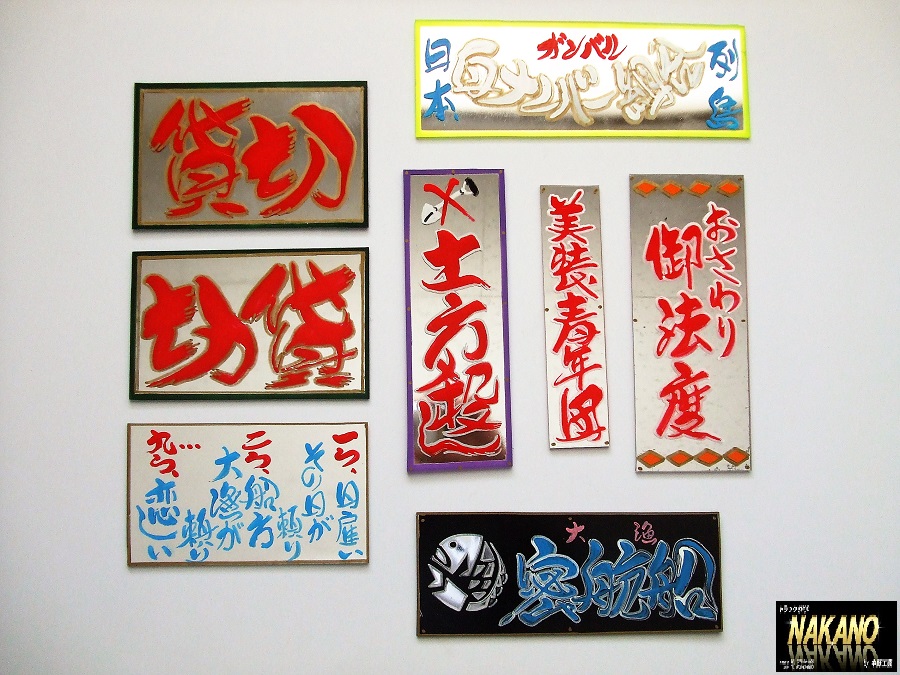 貸切
切貸
一つ、日雇い
その日が
頼り
二つ、船方
大漁が
頼り
…
九つ、恋しい
日本
ガンバル
白ナンバー組合
列島
土方殺し
美装青年団
おさわり
御法度
大漁
密航船
NAKANO